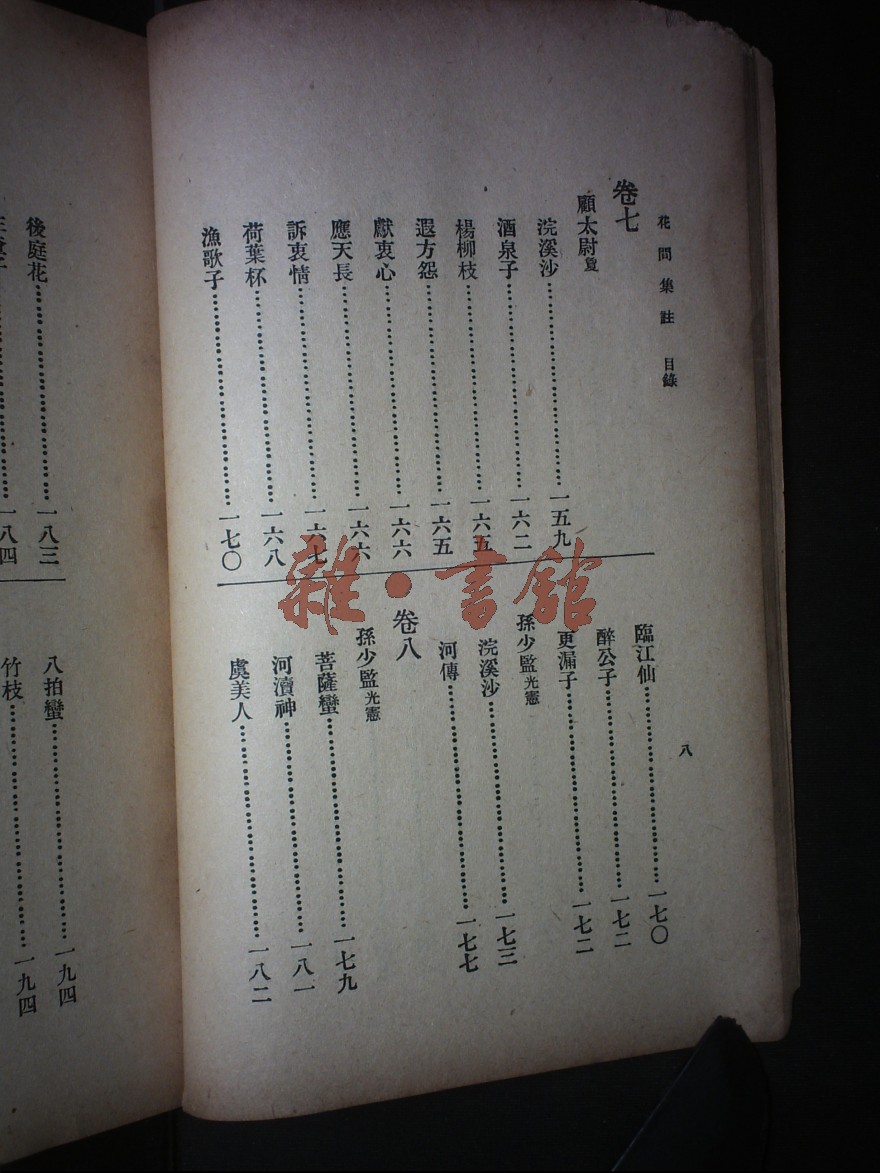 花間集註 目錄
八
卷七
顧太尉敻
浣溪沙……一五九
酒泉子……一六二
楊柳枝……一六五
遐方怨……一六五
獻衷心……一六六
應天長……一六六
訴衷情……一六七
荷葉杯……一六八
漁歌子……一七〇
臨江仙……一七〇
醉公子……一七二
更漏子……一七二
孫少監光憲
浣溪沙……一七三
河傳……一七七
卷八
孫少監光憲
菩薩蠻……一七九
河瀆神……一八一
虞美人……一八二
後庭花……一八三
一八四
八拍蠻……一九四
竹枝……一九四
雜·書館